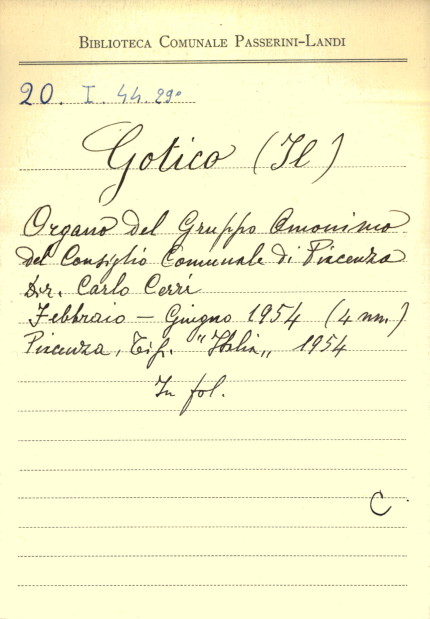 BIBLIOTECA COMUNALE PASSERINI-LANDI
20. I. 44. 29°
Gotico (Il)
Organo del Gruppo Omonimo
del Consiglio Comunale di Piacenza
Dir. Carlo Cerri
Febbraio - Giugno 1954 (4 nn.)
Piacenza, Tip. "Italia„ 1954
In fol.
C